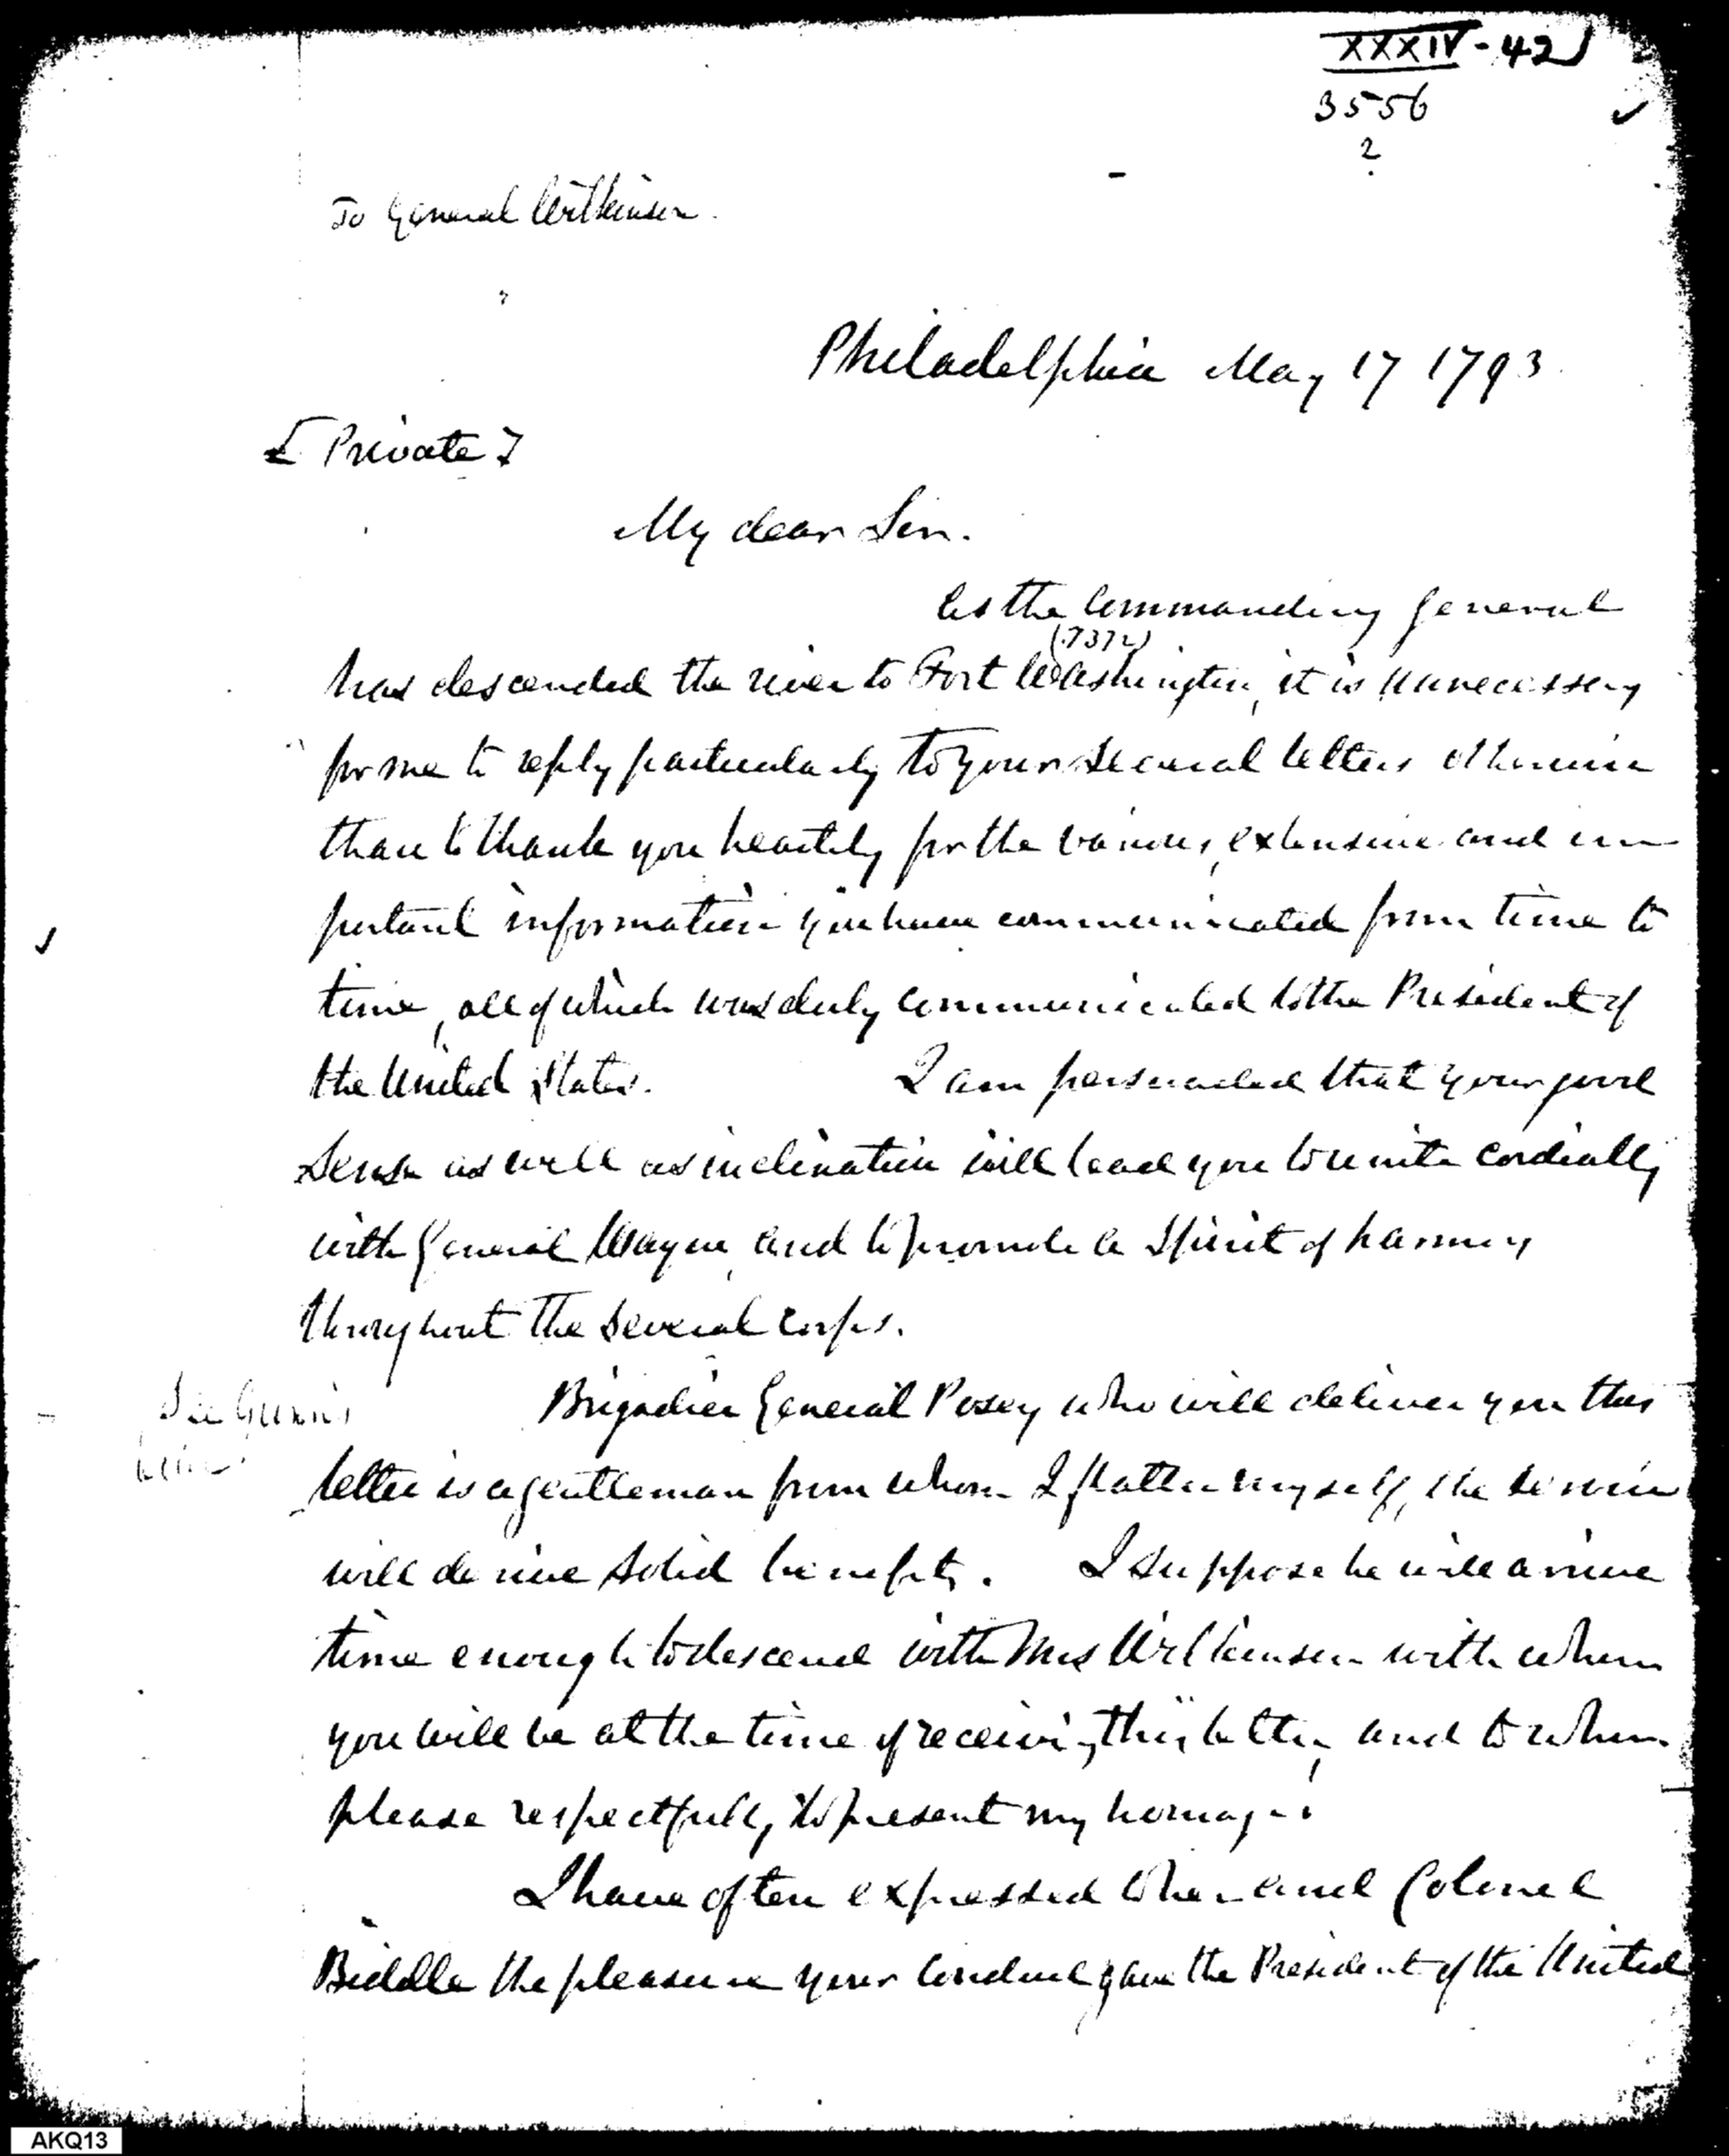 XXXIV - 42
3556
2
To General Wilkinson.
Philadelphia May 17 1793.
[Private]
My dear Sir.
As the Commanding General
(.7372)
has descended the river to Fort Washington, it is unnecessary
for me to reply particularly to your several letters otherwise
than to thank you heartily for the various, extensive and im
portant information you have communicated from time to
time, all of which was duly communicated to the President of
the United States. I am persuaded that your good
sense as well as inclination will lead you to unite cordially
with General Wayne, and to promote a spirit of harmony
throughout the several corps.
Brigadier General Posey who will deliver you this
letter is a gentleman from whom I flatter myself, the service
will derive solid benefits. I suppose he will arrive
time enough to descend with Mrs Wilkinson with whom
you will be at the time of receiving this letter, and to whom
please respectfully to present my homage.
I have often expressed to her and Colonel
Biddle the pleasure your conduct gave the President of the United
AKQ13